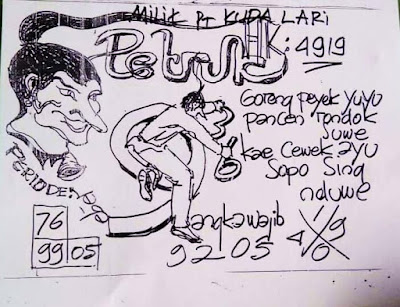 MILIK PT KUDA LARI
Petruk HK : 4919
Goreng peyek yuyu
pancen rondok
suwe
kae cewek ayu
Sopo Sing
nduwe
PERIODE
76
99 05
angka wajib
9205
1 9
4 0